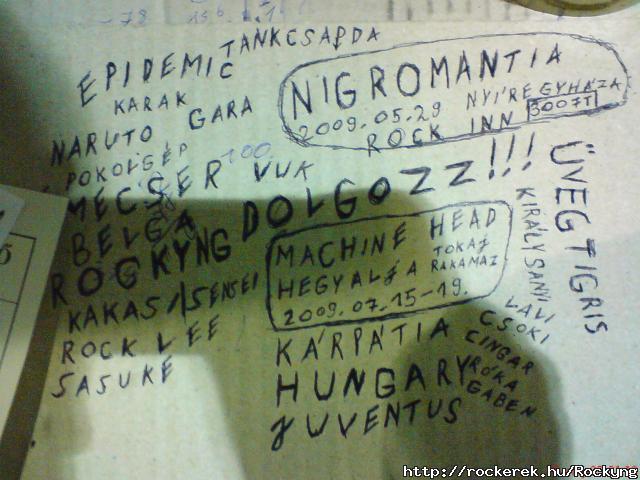 TANKCSAPDA
EPIDEMIC
KARAK
NARUTO GARA
POKOLGÉP 100
MECSER VUK
BELGA
ROCKYNG DOLGOZZ!!!
KAKASI/SENSEI
ROCK LEE
SASUKE
NIGROMANTIA
2009.05.29 NYÍREGYHÁZA
ROCK INN
MACHINE HEAD
HEGYALJA TOKAJ
RAKAMAZ
2009.07.15-19.
KÁRPÁTIA
HUNGARY
JUVENTUS
ÜVEGTIGRIS
LALI
CSOKI
CINGÁR
RÓKA
GABEN
http://rockerek.hu/Rockyng